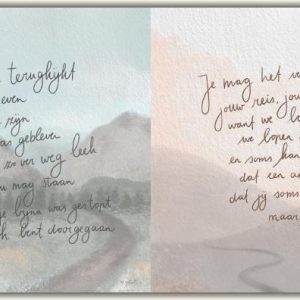 terugkijkt
even
zijn
as gebleven
zo ver weg leek
u mag staan
je bijna was gestopt
bent doorgegaan
Je mag het ve
jouw reis, jou
want we b
we lopen
en soms kan
dat een an
dat jij soms
maar